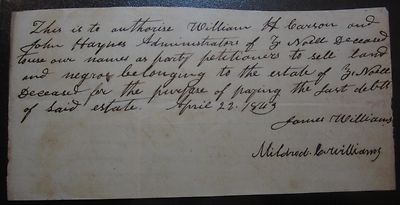 This is to authorise William H Carson and
John Haynes Administrators of Z Noell Deceased
to use our names as party petitioners to sell land
and negros belonging to the estate of Z Noell
Deceased for the purpose of paying the Just debts
of said estate. April 22. 1843
James Williams
Mildred. C Williams